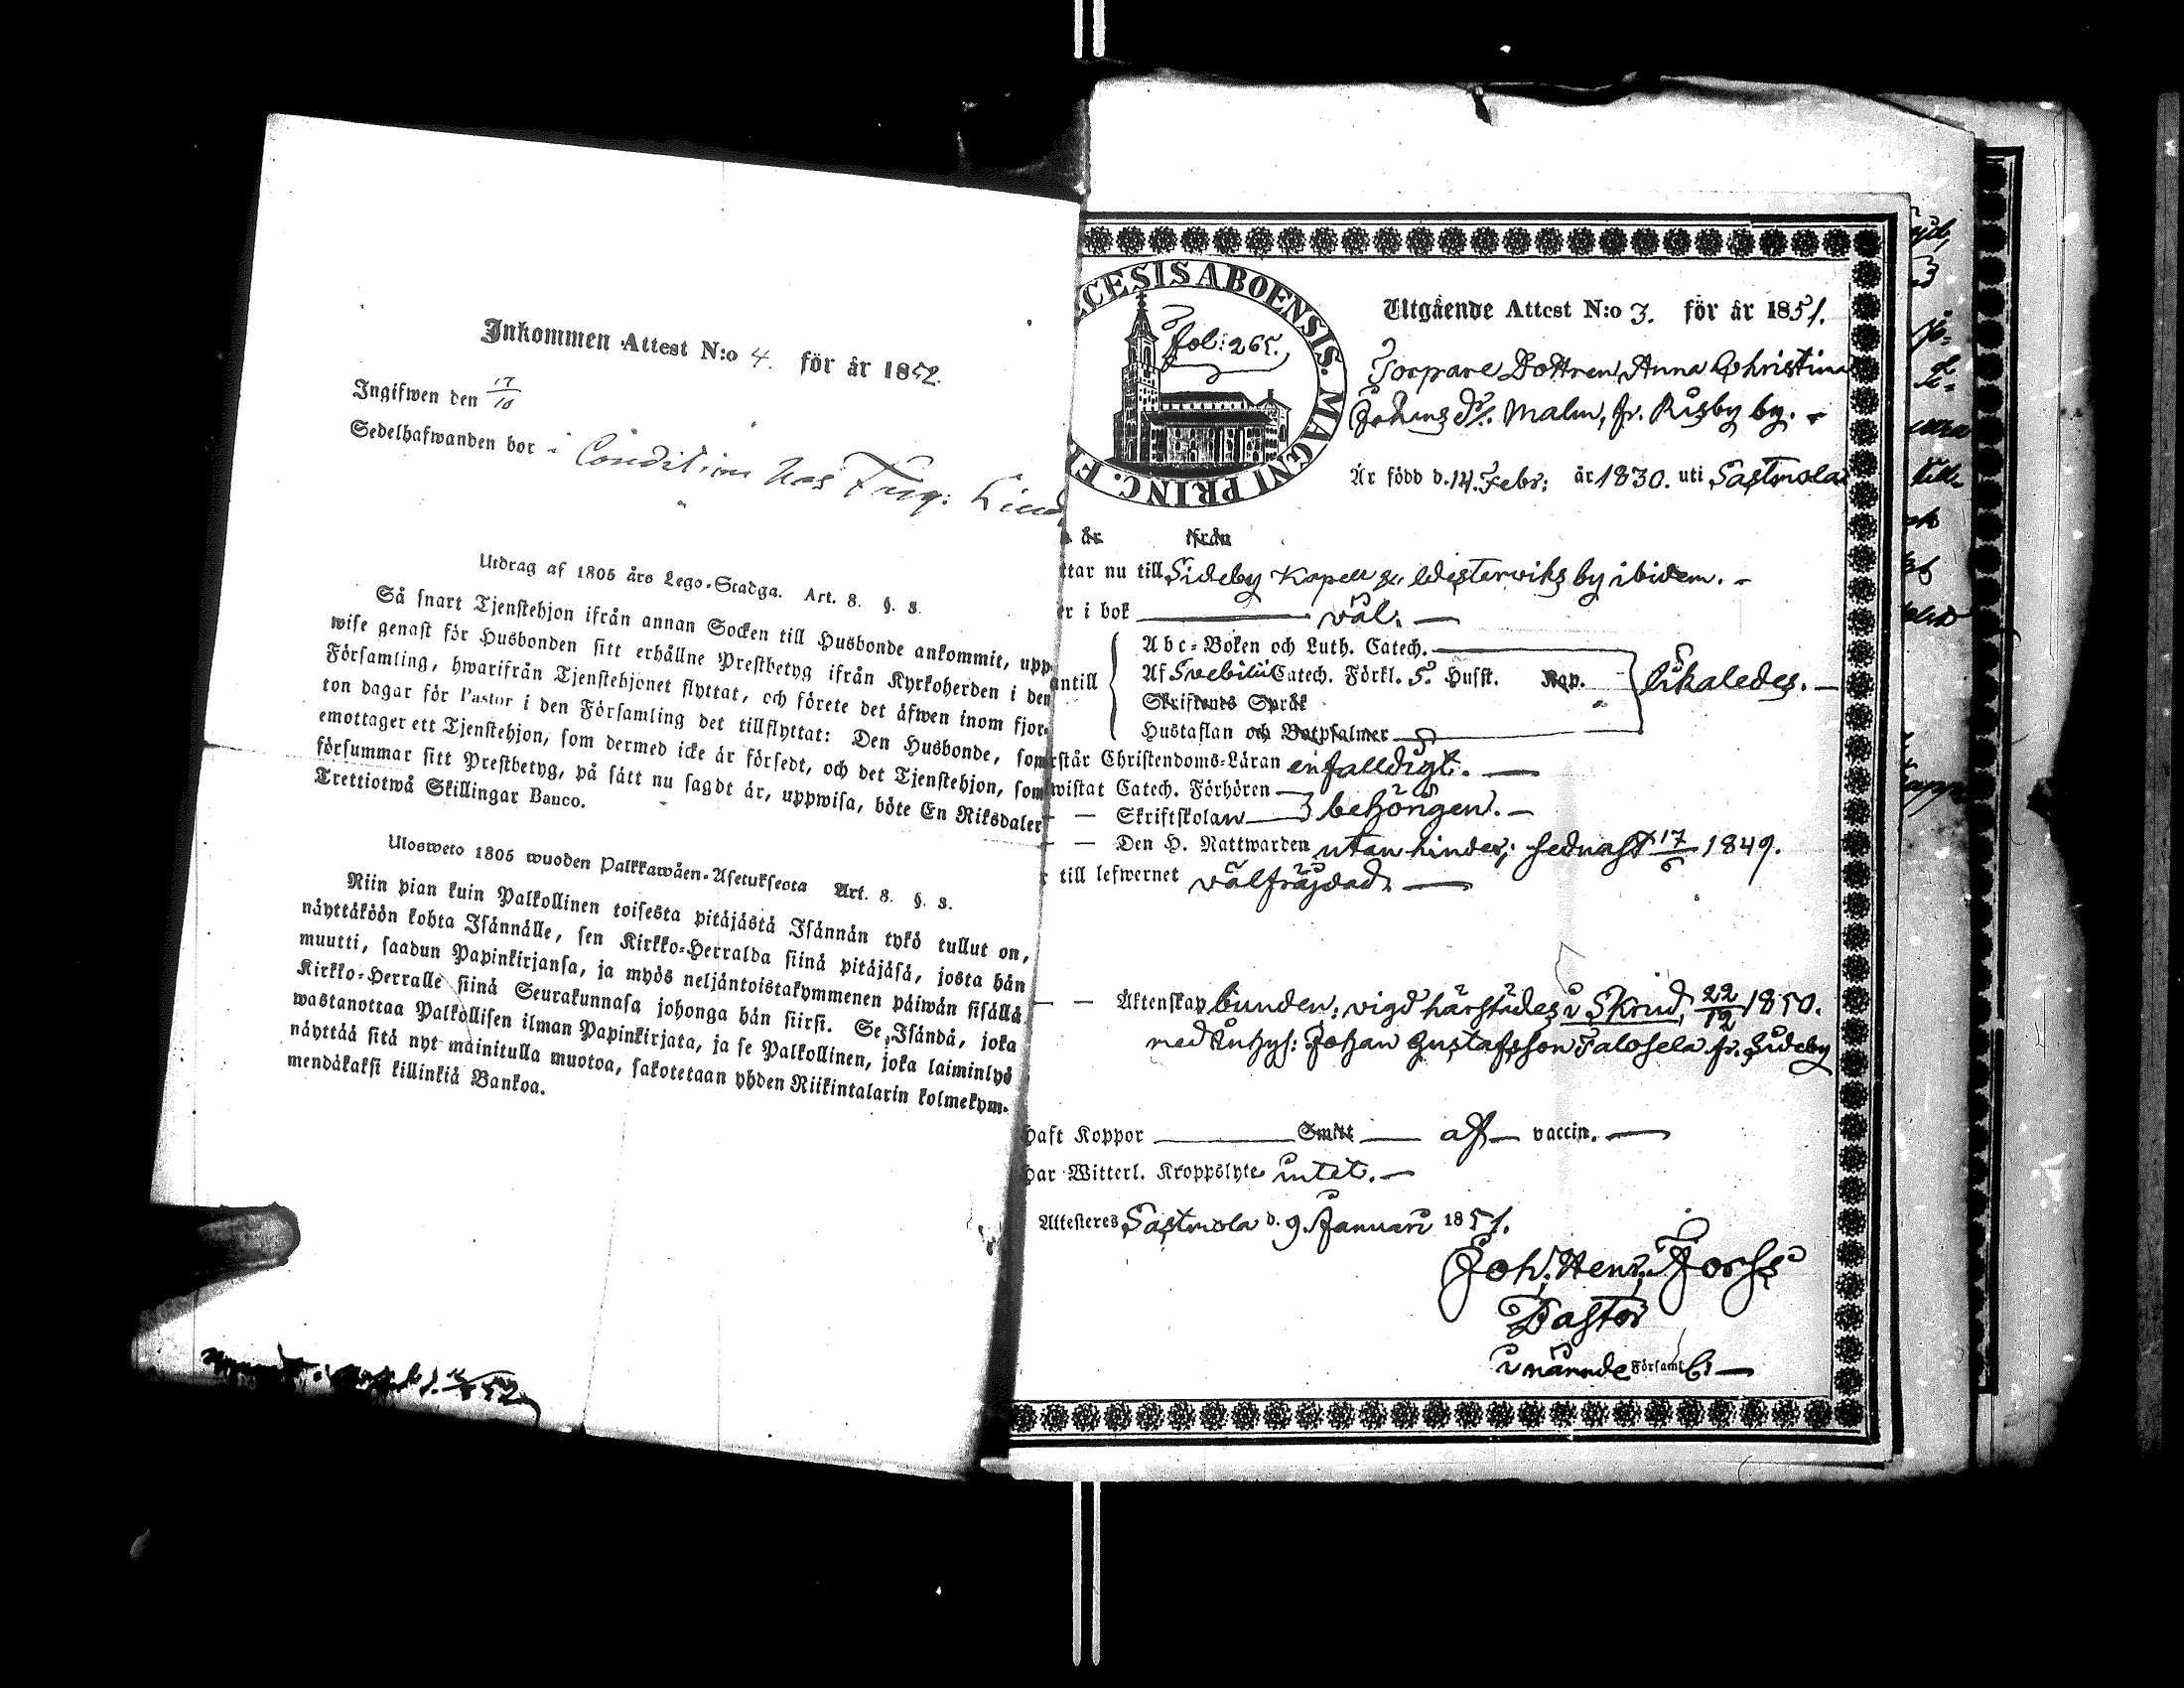 Inkommen Attest N:o 4. för år 1852.
Ingifwen den 17/10
Sedelhafwanden bor i Condition hos
Utdrag af 1805 års Lego-Stadga. Art. 8. §. 3.
Så snart Tjenstehjon ifrån annan Socken till Husbonde ankommit, upp-
wise genast för Husbonden sitt erhållne Prestbetyg ifrån Kyrkoherden i den
Församling, hwarifrån Tjenstehjonet flyttat, och förete det äfwen inom fjor-
ton dagar för Pastor i den Församling det tillflyttat: Den Husbonde, som
emottager ett Tjenstehjon, som dermed icke är försedt, och det Tjenstehjon, som
försummar sitt Prestbetyg, på sätt nu sagdt är, uppwisa, böte En Riksdaler
Trettiotwå Skillingar Banco.
Ulosweto 1805 wuoden Palkkawäen-Asetuksesta Art. 8. §. 3.
Niin pian kuin Palkollinen toisesta pitäjästä Isännän tykö tullut on,
näyttäköön kohta Isännälle, sen Kirkko-Herralda siinä pitäjäsä, josta hän
muutti, saadun Papinkirjansa, ja myös neljäntoistakymmenen päiwän sisällä
Kirkko-Herralle siinä Seurakunnasa johonga hän siirsi. Se Isändä, joka
wastanottaa Palkollisen ilman Papinkirjata, ja se Palkollinen, joka laiminlyö
näyttää sitä nyt mainitulla muotoa, sakotetaan yhden Riikintalarin kolmekym-
mendäkaksi killinkiä Bankoa.
CESIS ABOENSIS. MAGNI PRINC.
Fol: 265.
Utgående Attest N:o 3. för år 1851.
Torpare Dottren Anna Christina
Johans dr. Malm, fr. Råsby by.
Är född d. 14. Febr: år 1830. uti Sastmola
år ifrån
ttar nu till Sideby Kapell & Westerwiks by ibidem.
er i bok väl.
Abc-Boken och Luth. Catech.
antill Af Svebilii Catech. Förkl. 5. Hufst. Kap. likaledes.
Skriftenes Språk
Hustaflan och Botpsalmer
rstår Christendoms-Läran enfalldigt.
wistat Catech. Förhören
Skriftskolan behörigen.
Den H. Nattwarden utan hinder; sednast 17/6 1849.
till lefwernet välfräjdad.
Äktenskap bunden; vigd härstädes i Skrud, 22/12 1850.
med Inhys: Johan Gustafsson Talosela fr. Sideby
haft Koppor Smitt af vaccin.
har Witterl. Kroppslyte intet.
Attesteres Sastmola d. 9. Januari 1851.
Joh. Henr. Forss
Pastor
i nämnde Församl.